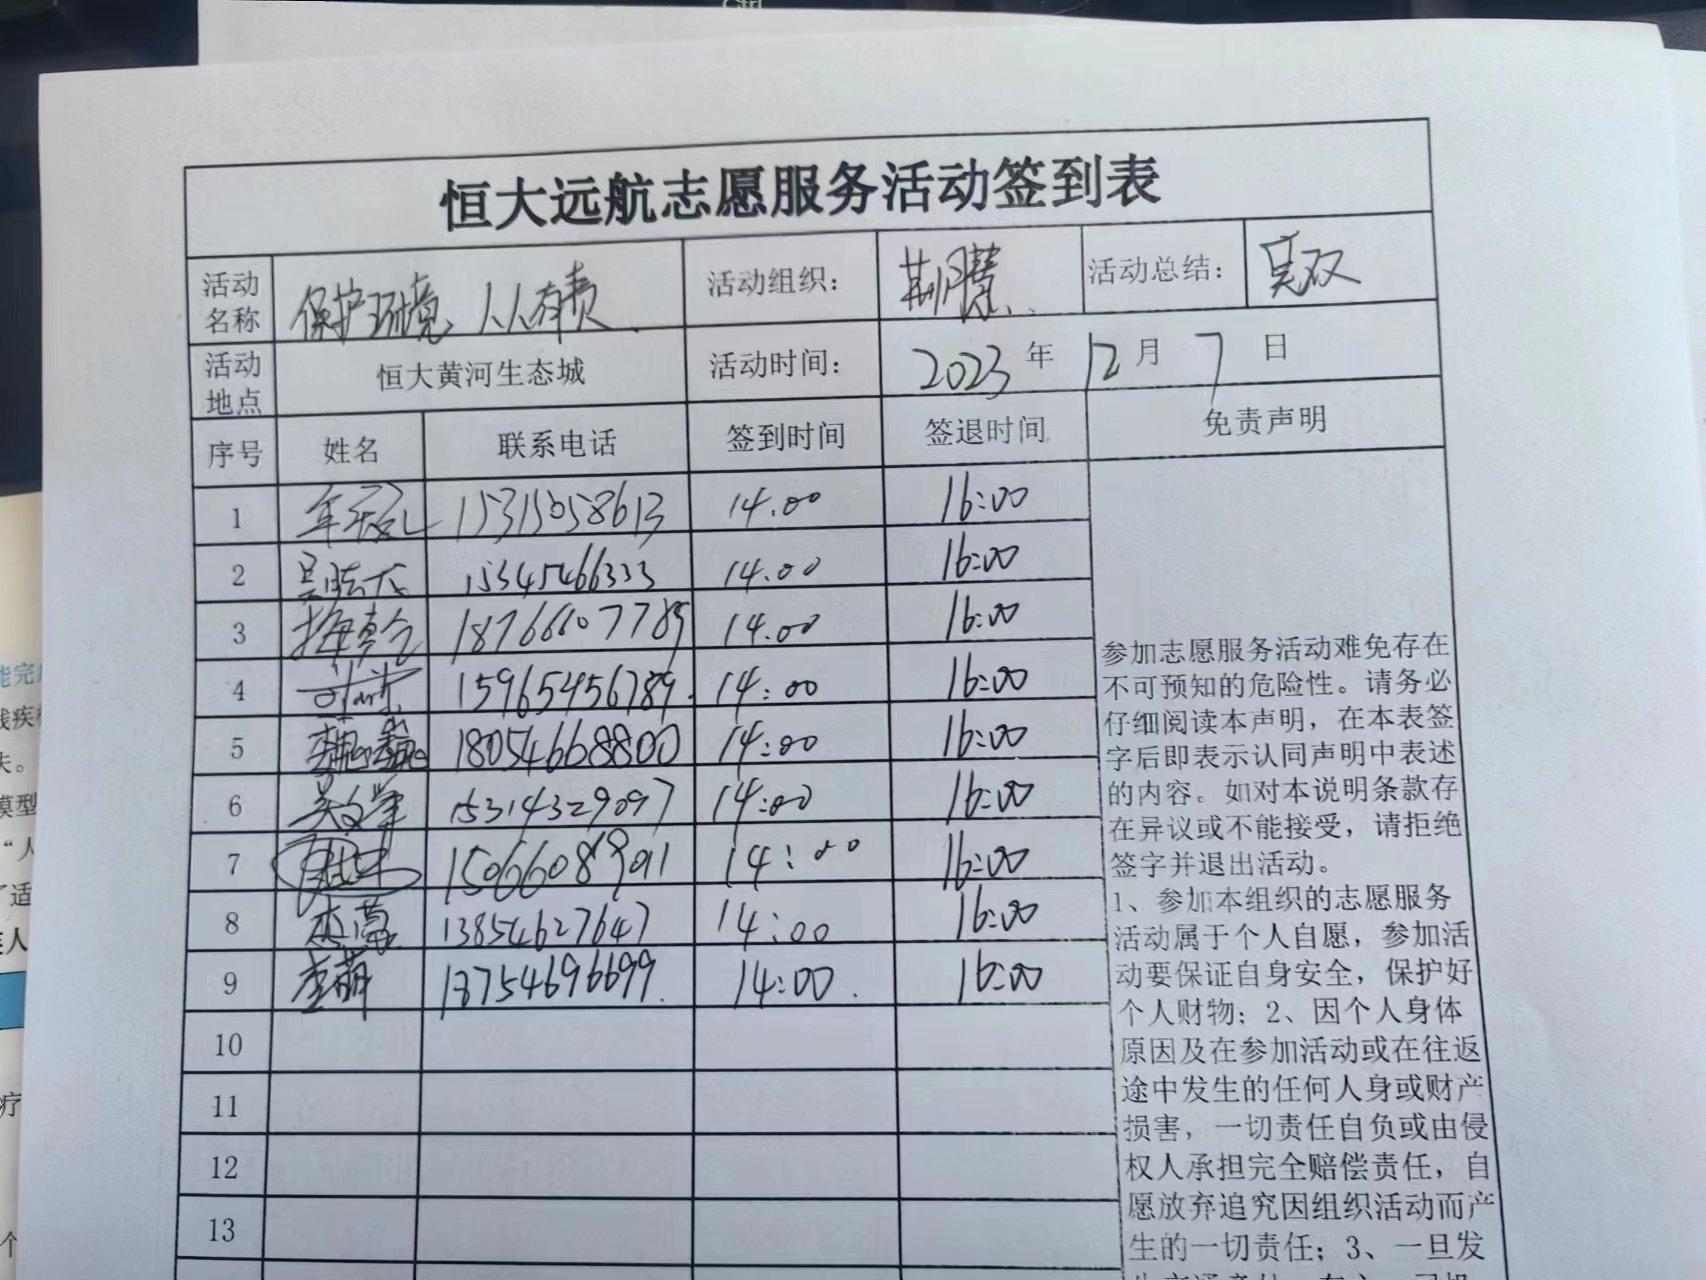 恒大远航志愿服务活动签到表
活动名称 保护环境,人人有责. 活动组织: 荆慧 活动总结: 吴双
活动地点 恒大黄河生态城 活动时间: 2023 年 12 月 7 日
序号 姓名 联系电话 签到时间 签退时间 免责声明
1 15315058613 14.00 16:00
2 15345466333 14.00 16:00
3 18766607789 14.00 16:00
4 15965456789 14:00 16:00
5 18054668800 14:00 16:00
6 吴文军 15314329097 14:00 16:00
7 15066089011 14:00 16:00
8 13854627647 14:00 16:00
9 李萌 18754696699 14:00 16:00
10
11
12
13
参加志愿服务活动难免存在
不可预知的危险性。请务必
仔细阅读本声明，在本表签
字后即表示认同声明中表述
的内容。如对本说明条款存
在异议或不能接受，请拒绝
签字并退出活动。
1、参加本组织的志愿服务
活动属于个人自愿，参加活
动要保证自身安全，保护好
个人财物；2、因个人身体
原因及在参加活动或在往返
途中发生的任何人身或财产
损害，一切责任自负或由侵
权人承担完全赔偿责任，自
愿放弃追究因组织活动而产
生的一切责任；3、一旦发